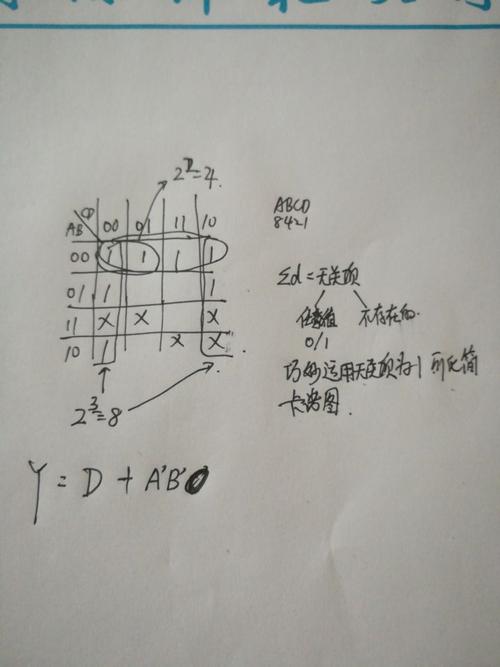 2²=4.
CD
AB 00 01 11 10
00 1 1 1 1
01 1 1
11 X X X
10 1 X X
2³=8
Y = D + A'B'
ABCD
8421
Σd=无关项
任意值 不存在的.
0/1
巧妙运用无关项为1 所化简
卡诺图.